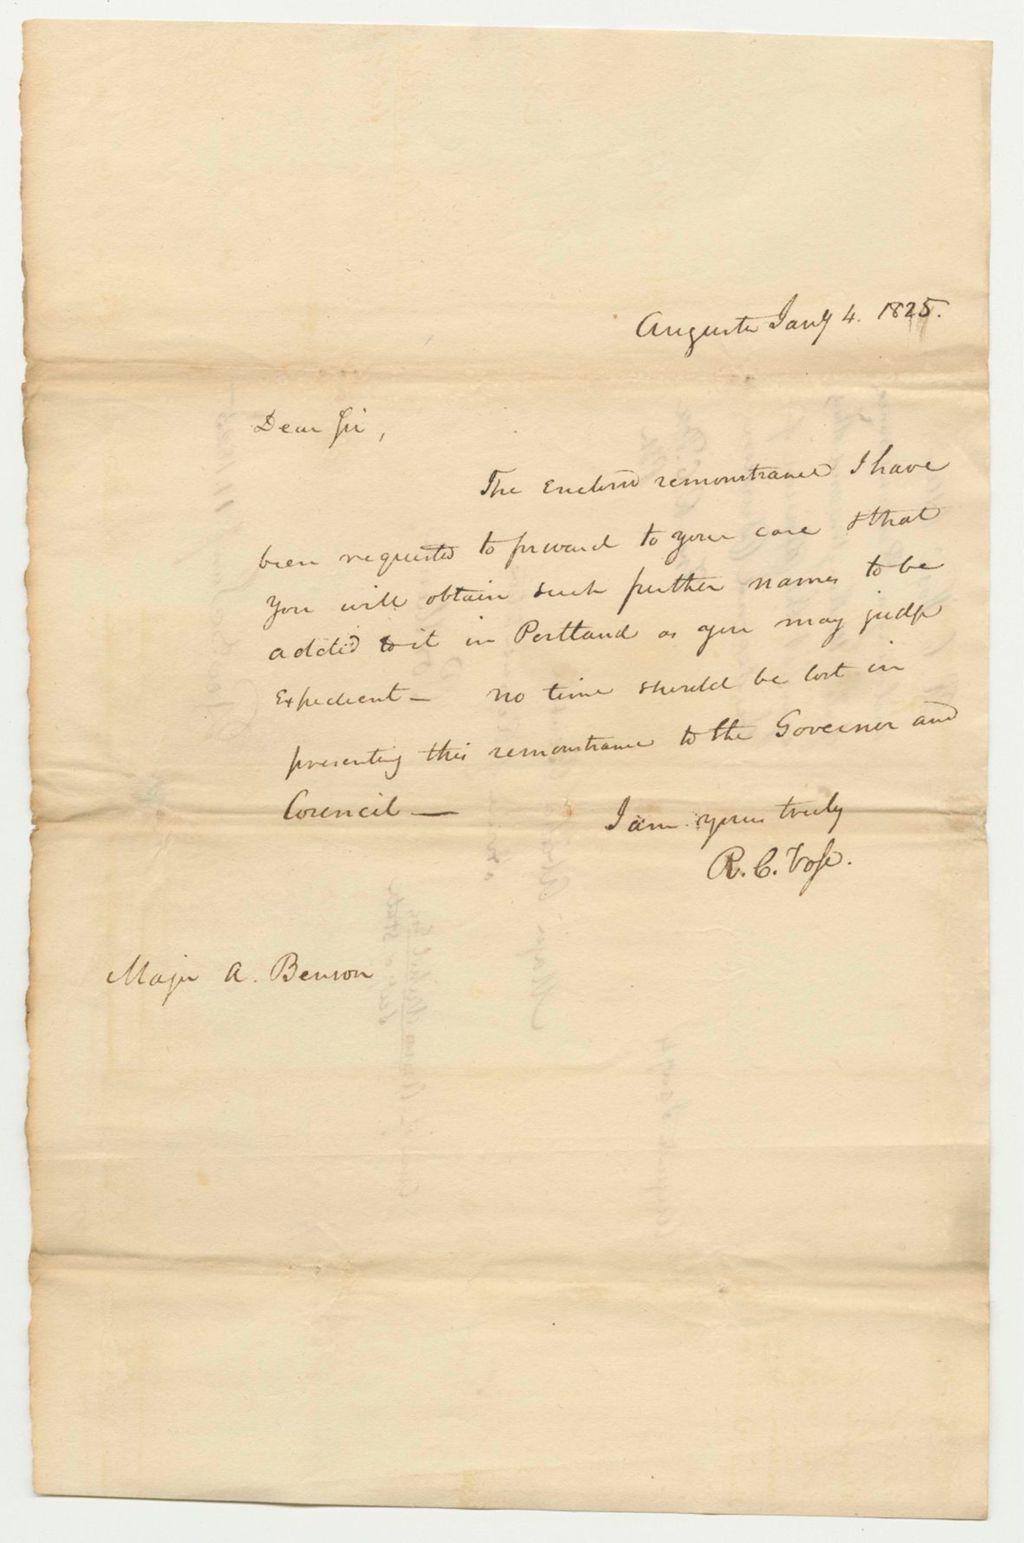 Augusta Jany 4. 1825.
Dear Sir,
The Enclosed remonstrance I have
been requested to forward to your care & that
you will obtain such further names to be
added to it in Portland as you may judge
Expedient — no time should be lost in
presenting this remonstrance to the Governor and
Council —
I am yours truly
R. C. Vose.
Major A. Benson